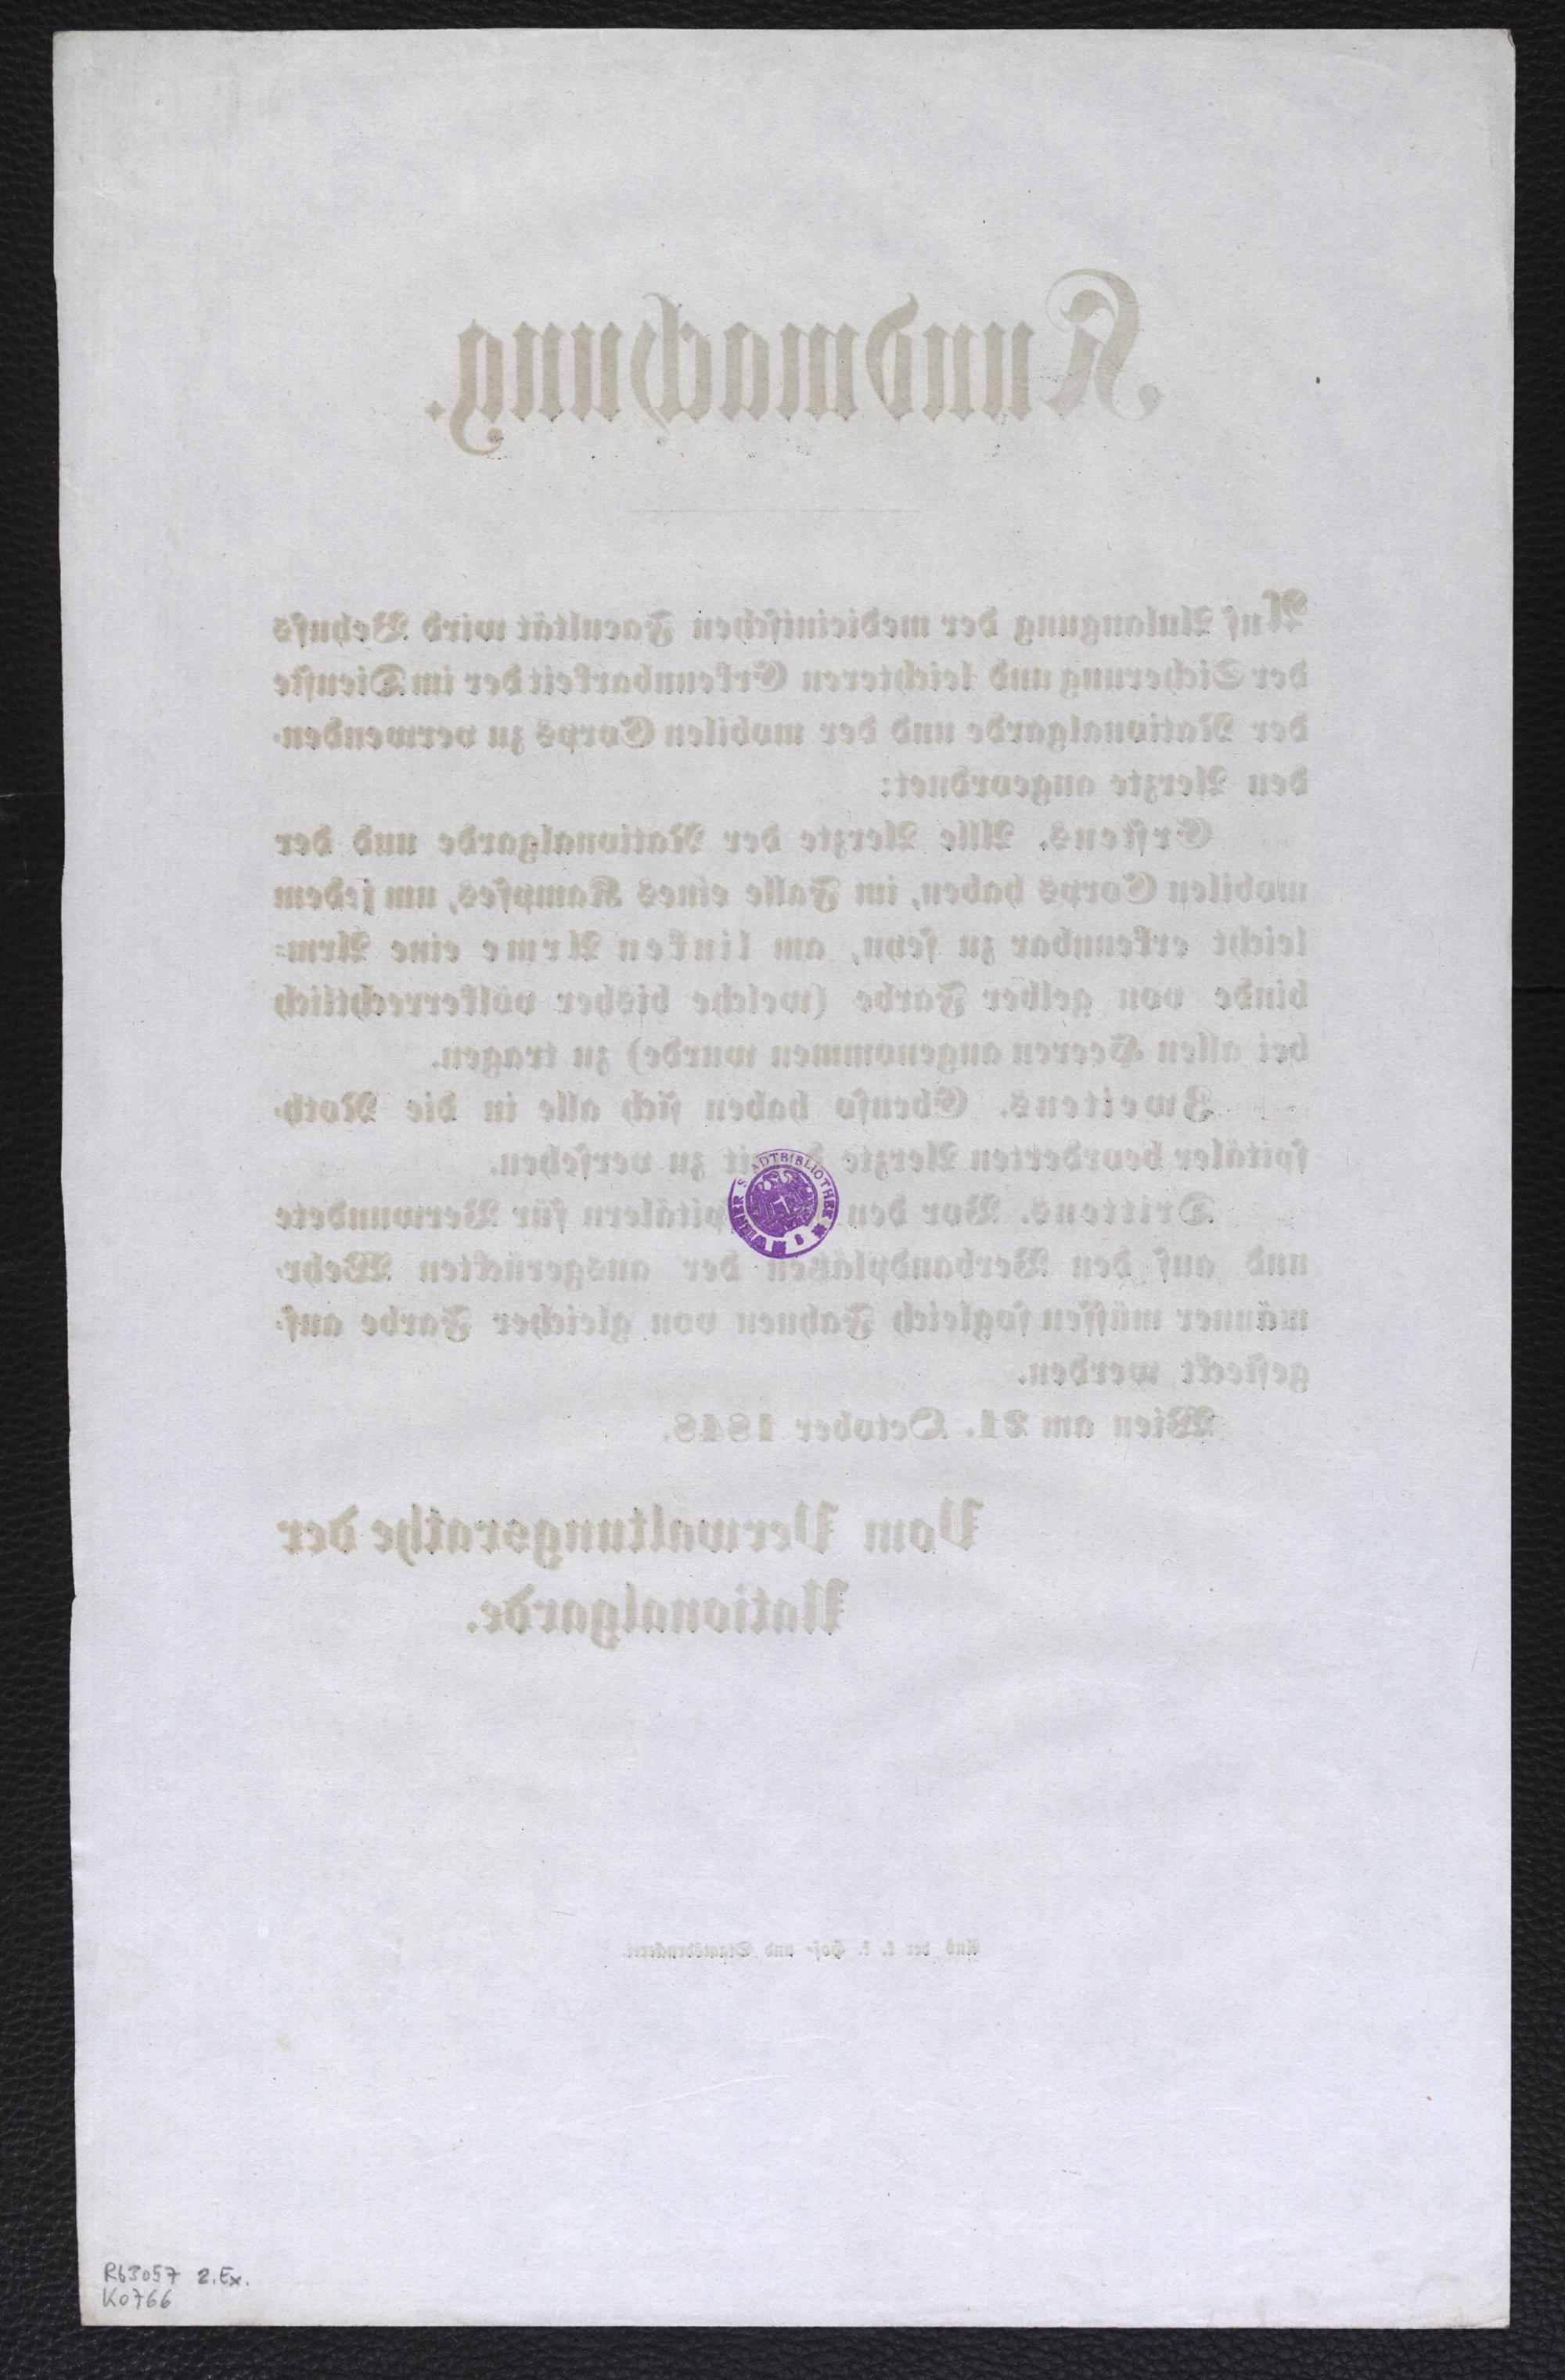 Kundmachung.
Auf Anlangung der medicinischen Facultät wird Behufs
der Sicherung und leichteren Erkennbarkeit der im Dienste
der Nationalgarde und der mobilen Corps zu verwenden-
den Aerzte angeordnet:
Erstens. Alle Aerzte der Nationalgarde und der
mobilen Corps haben, im Falle eines Kampfes, um jedem
leicht erkennbar zu seyn, am linken Arme eine Arm-
binde von gelber Farbe (welche bisher völkerrechtlich
bei allen Heeren angenommen wurde) zu tragen.
Zweitens. Ebenso haben sich alle in die Noth-
spitäler beorderten Aerzte zu versehen.
Drittens. Vor den spitälern für Verwundete
und auf den Verbandplätzen der ausgerückten Wehr-
männer müssen sogleich Fahnen von gleicher Farbe auf-
gesteckt werden.
Wien am 21. October 1848.
Vom Verwaltungsrathe der
Nationalgarde.
Aus der k. k. Hof- und Staatsdruckerei.
WIENER STADTBIBLIOTHEK
R63057 2.Ex.
K0766